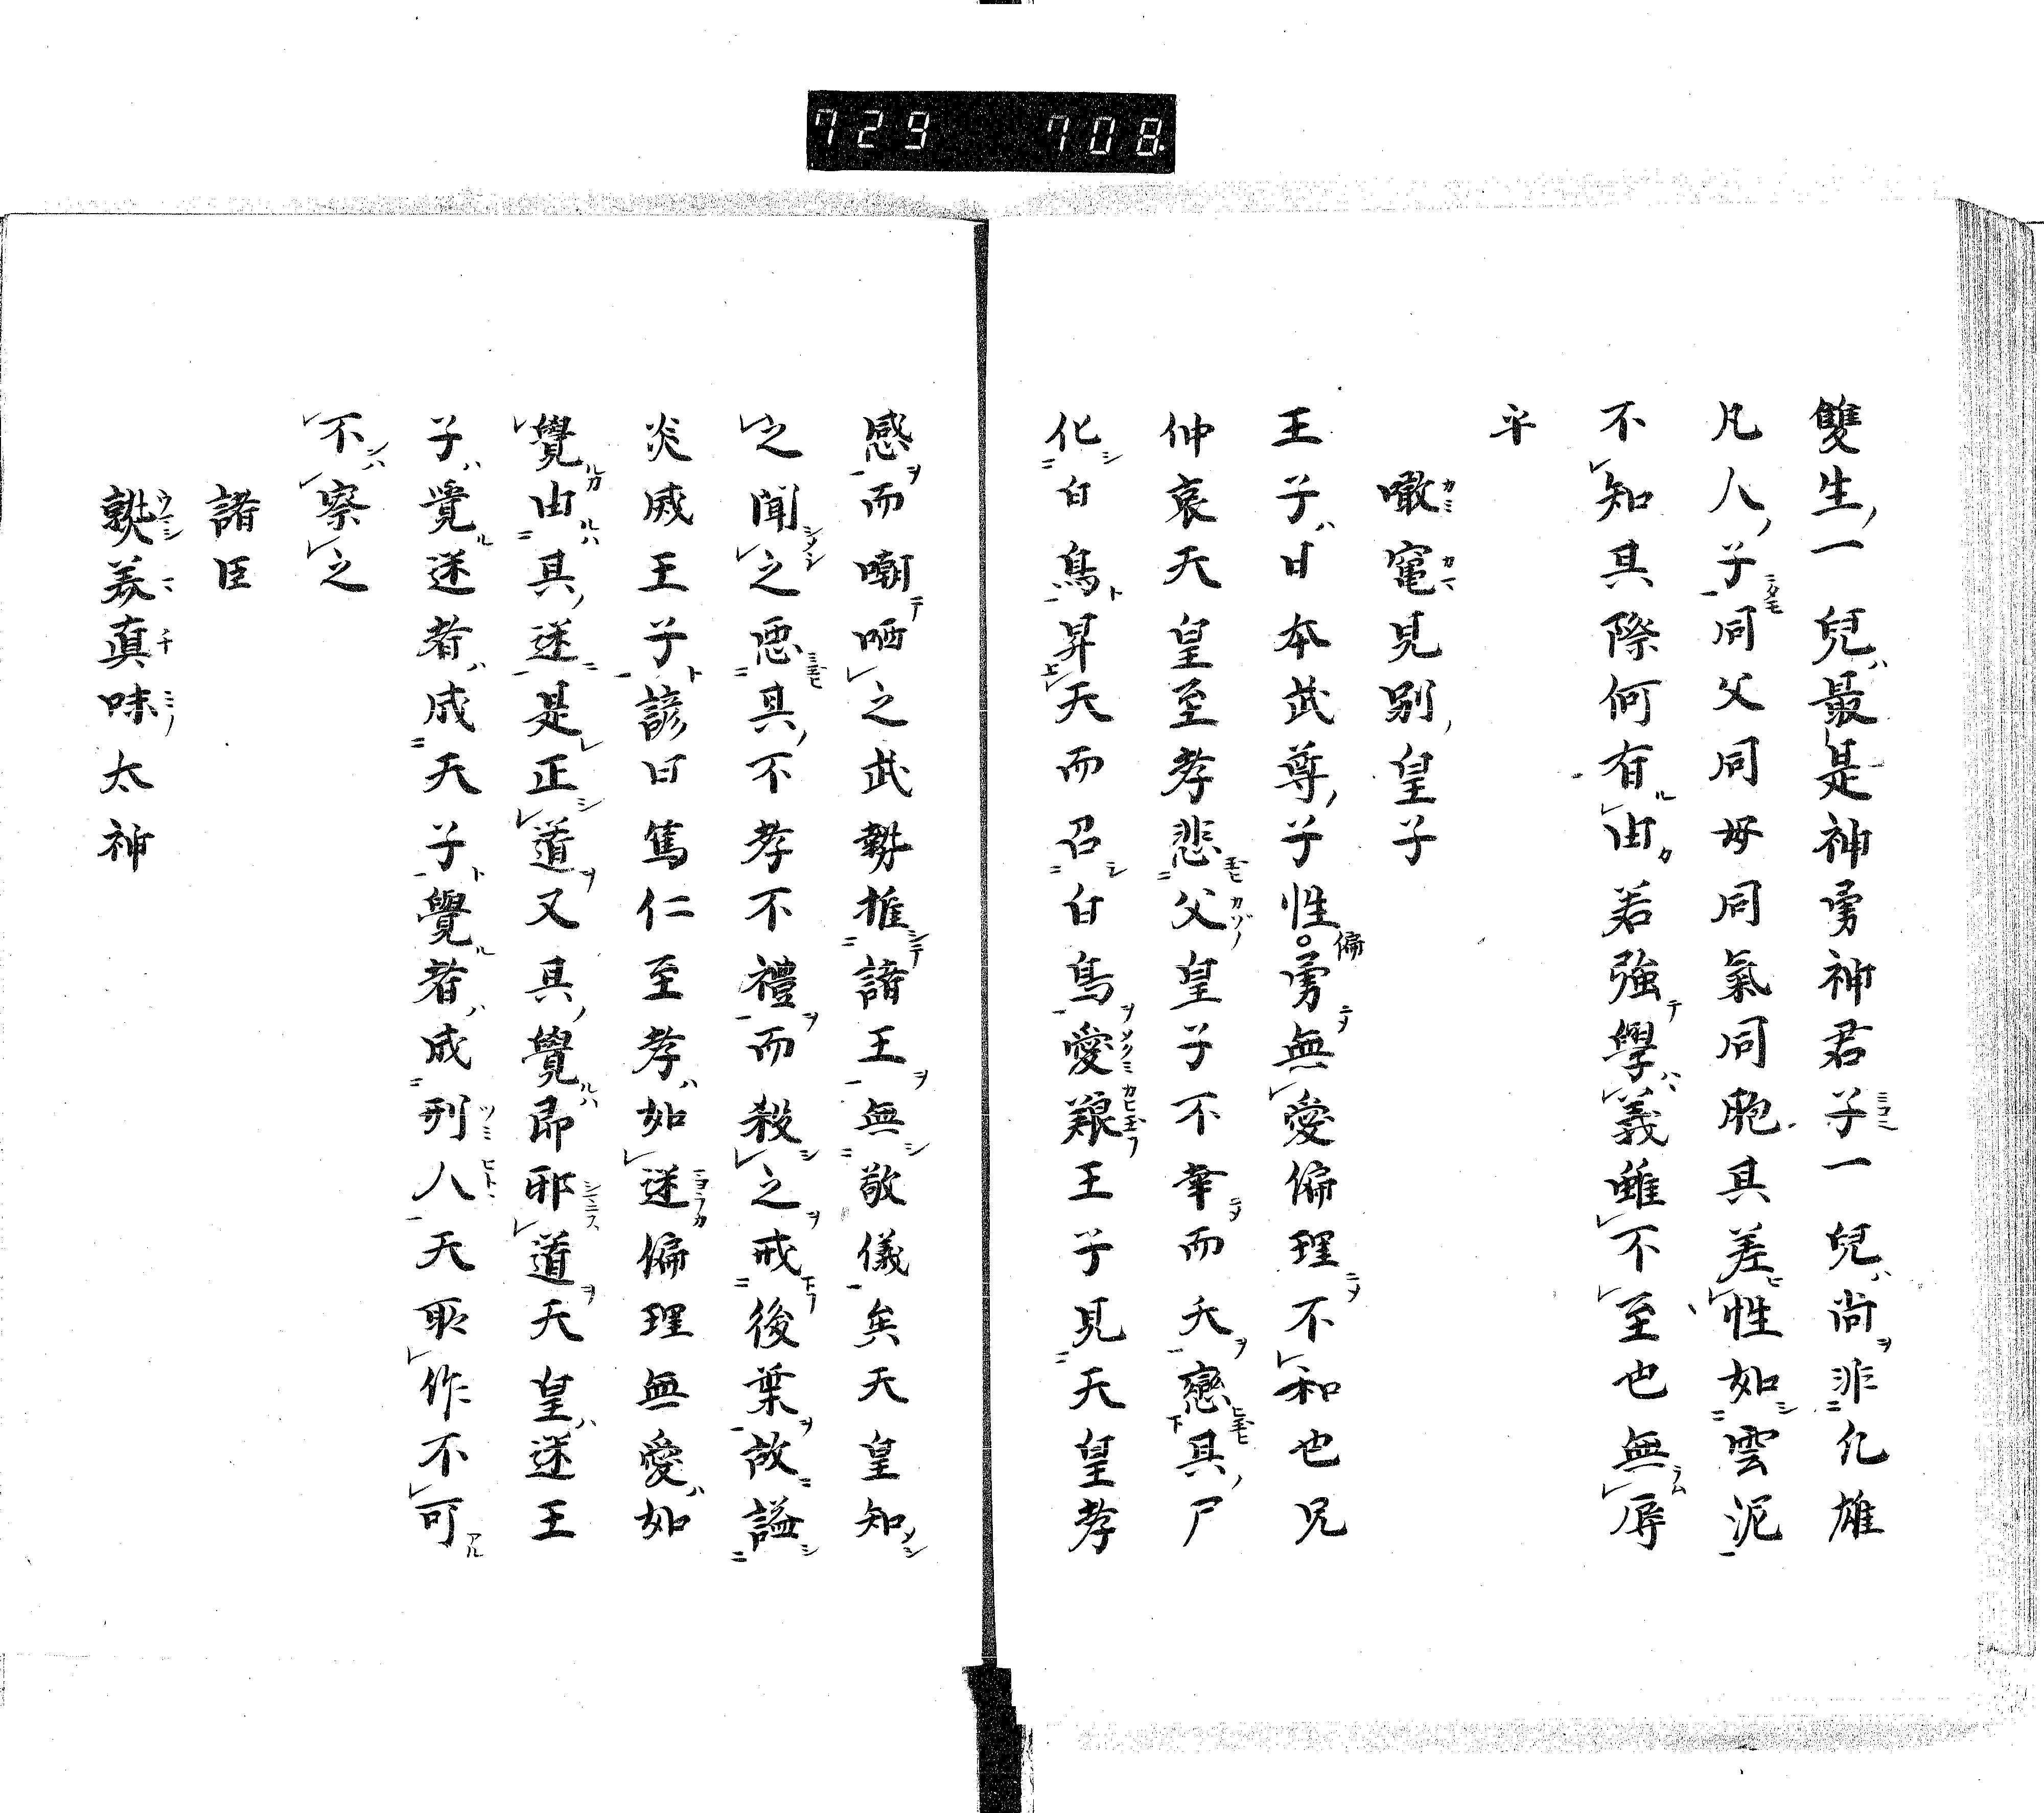 729 708.
雙生一兒最是神勇神君子一兒尚非仁雄
凡人子同父同母同氣同胞其差性如雲泥
不知其際何有由若強學義雖不至也無辱
乎
噉竃見別皇子
王子日本武尊子性偏勇無愛偏理不和也兄
仲哀天皇至孝悲父皇子不幸而夭戀其尸
化白鳥昇天而召白鳥愛艱王子見天皇孝
感而嘲哂之武勢推諸王無敬儀矣天皇知
之聞之惡其不孝不禮而殺之戒後葉故謚
炎威王子諺曰篤仁至孝如迷偏理無愛如
覺由其迷是正道又其覺即邪道天皇迷王
子覺迷者成天子覺者成刑人天取作不可
不察之
諸臣
美真味太神